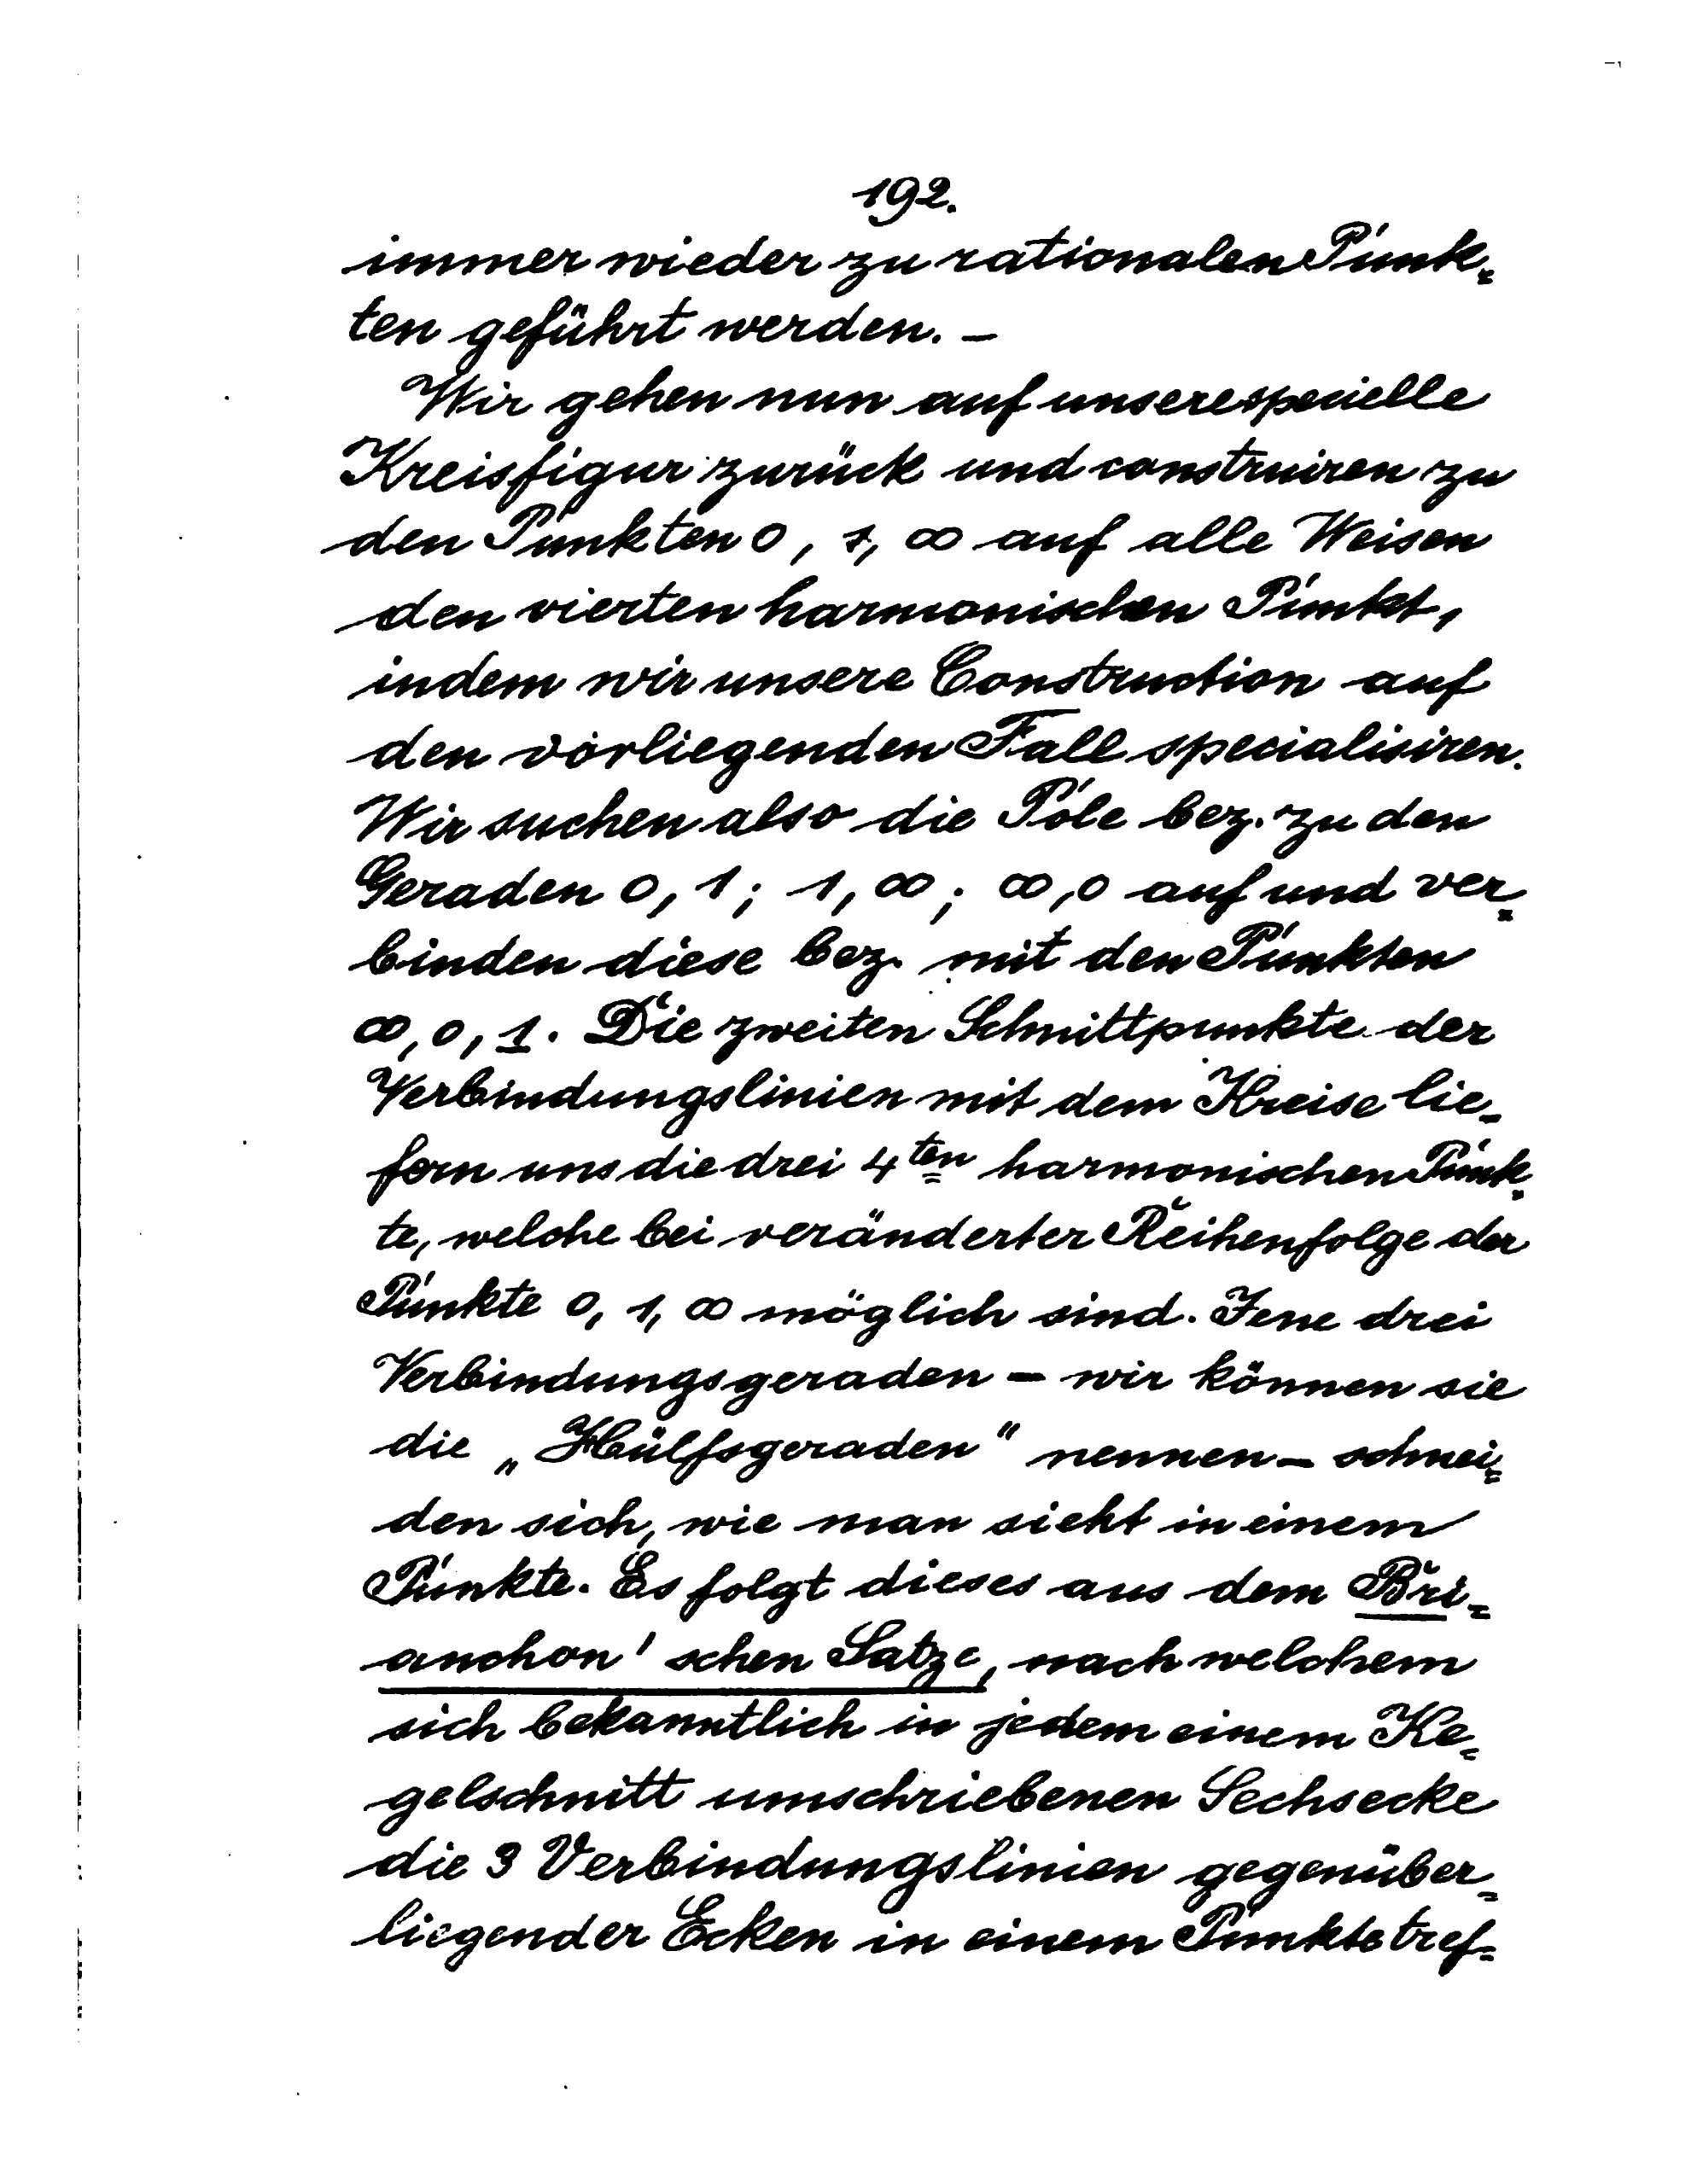 192.
immer wieder zu rationalen Punk=
ten geführt werden. –
Wir gehen nun auf unsere specielle
Kreisfigur zurück und construiren zu
den Punkten 0, 1, ∞ auf alle Weisen
den vierten harmonischen Punkt,
indem wir unsere Construction auf
den vorliegenden Fall specialisiren.
Wir suchen also die Pole bez. zu den
Geraden 0, 1; 1, ∞; ∞, 0 auf und ver=
binden diese bez. mit den Punkten
∞, 0, 1. Die zweiten Schnittpunkte der
Verbindungslinien mit dem Kreise lie=
fern uns die drei 4ten harmonischen Punk=
te, welche bei veränderter Reihenfolge der
Punkte 0, 1, ∞ möglich sind. Jene drei
Verbindungsgeraden – wir können sie
die „Hülfsgeraden" nennen – schnei=
den sich, wie man sieht in einem
Punkte. Es folgt dieses aus dem Bri=
anchon'schen Satze, nach welchem
sich bekanntlich in jedem einem Ke=
gelschnitt umschriebenen Sechsecke
die 3 Verbindungslinien gegenüber=
liegender Ecken in einem Punkte tref=